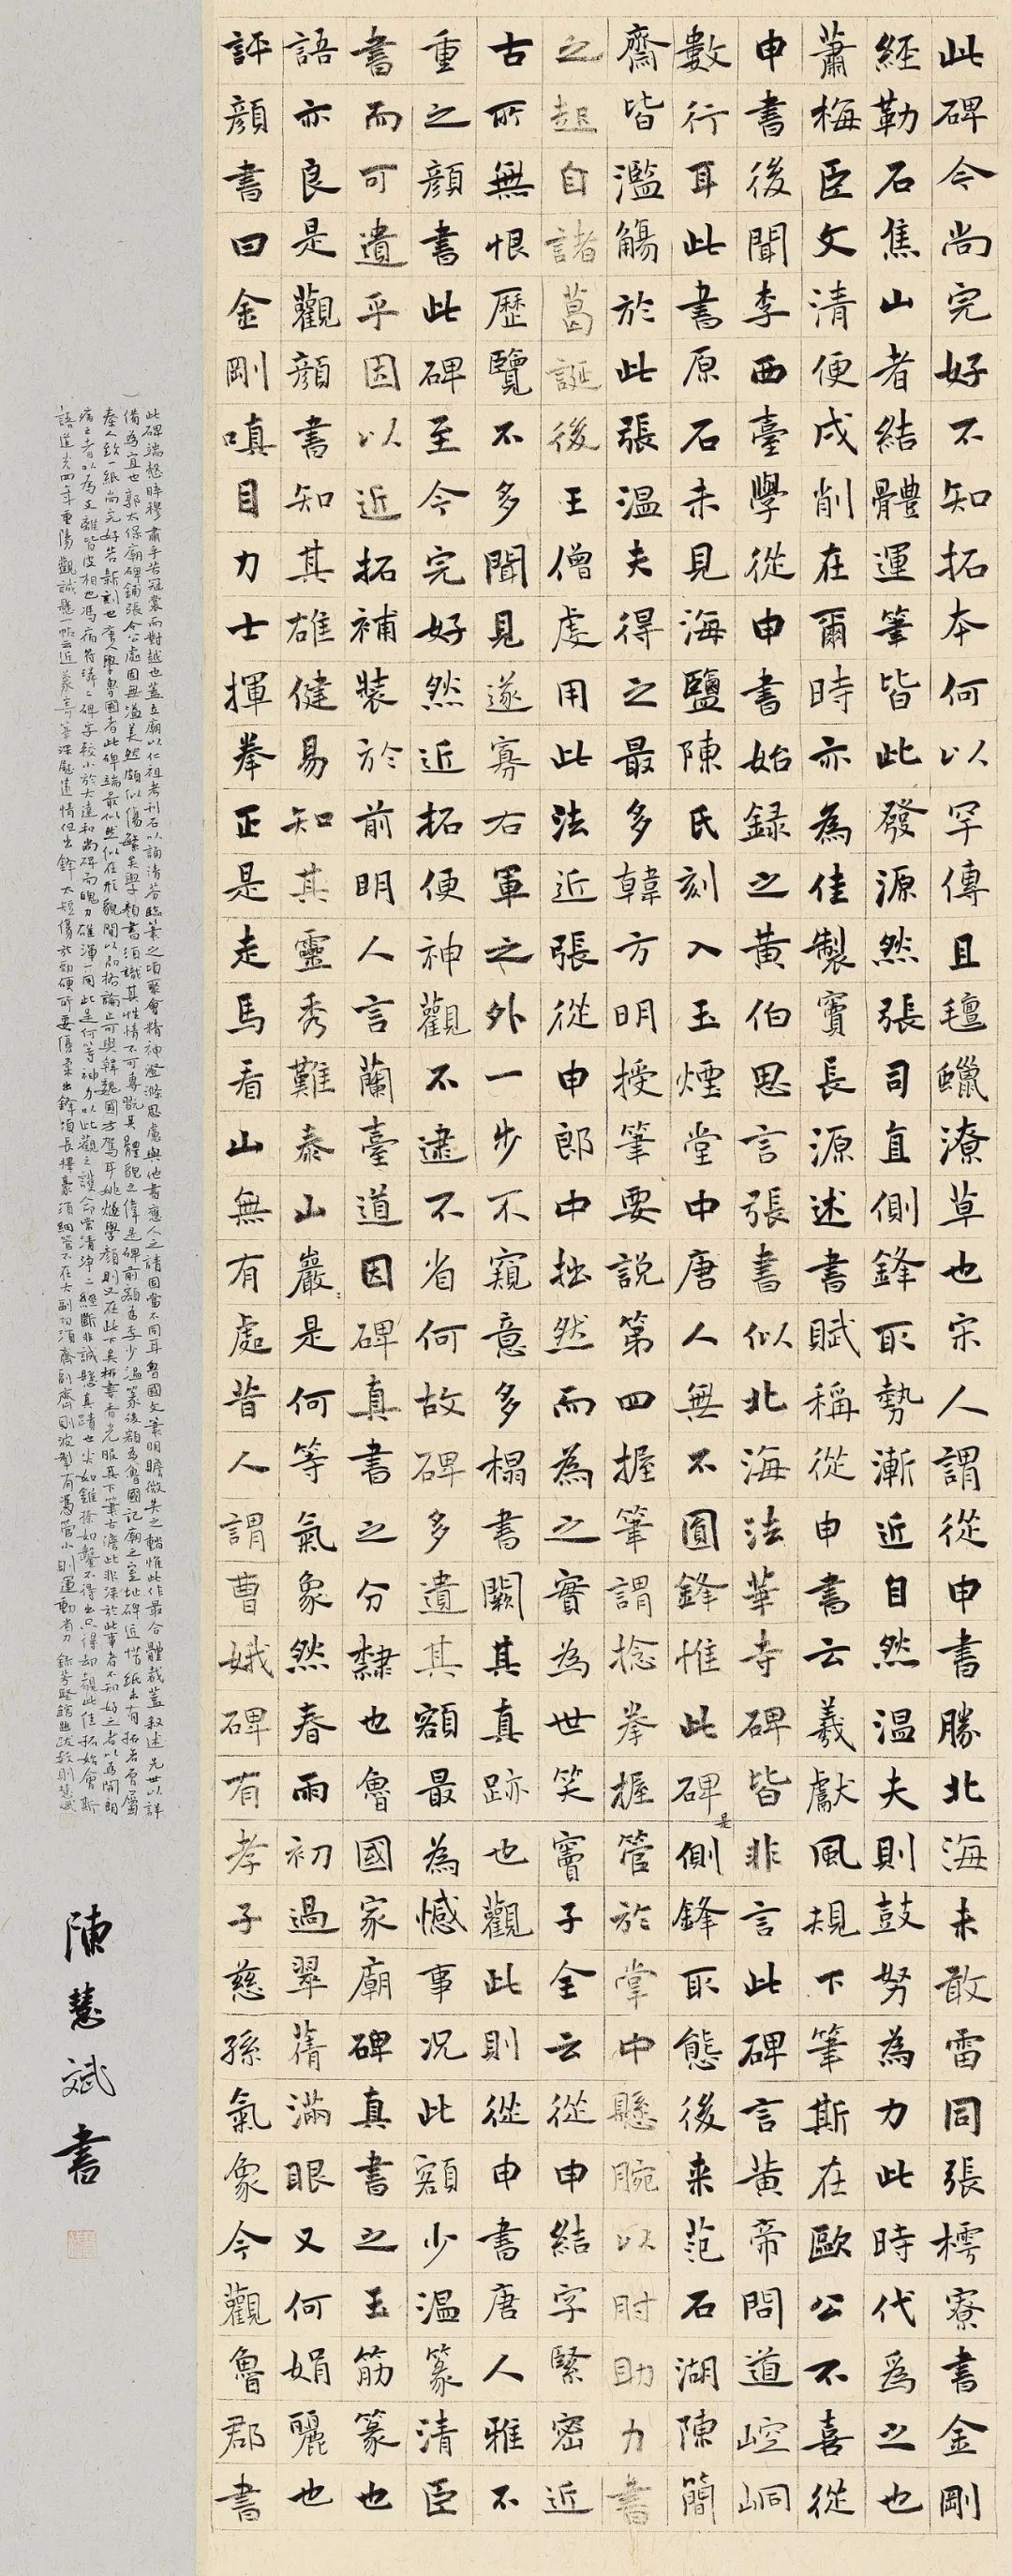 此碑今尚完好不知拓本何以罕傳且氊蠟潦草也宋人謂從申書勝北海未敢雷同張樗寮書金剛
經勒石焦山者結體運筆皆此發源然張司直側鋒取勢漸近自然温夫則鼓努為力此時代為之也
蕭梅臣文清便戌削在爾時亦為佳製竇長源述書賦稱從申書云羲獻風規下筆斯在歐公不喜從
申書後聞李西臺學從申書始録之黄伯思言張書似北海法華寺碑皆非言此碑言黄帝問道崆峒
是
數行耳此書原石未見海鹽陳氏刻入玉煙堂中唐人無不圓鋒惟此碑側鋒取態後来范石湖陳簡
齋皆濫觴於此張温夫得之最多韓方明授筆要説第四握筆謂捻拳握管於掌中懸腕以肘助力書
之起自諸葛誕後王僧虔用此法近張從申郎中拙然而為之實為世笑竇子全云從申結字緊密近
古所無恨歷覽不多聞見遂寡右軍之外一步不窺意多榻書闕其真跡也觀此則從申書唐人雅不
重之顔書此碑至今完好然近拓便神觀不逮不省何故碑多遺其額最為憾事况此額少温篆清臣
書而可遺乎因以近拓補裝於前明人言蘭臺道因碑真書之分隸也魯國家廟碑真書之玉筋篆也
語亦良是觀顔書知其雄健易知其靈秀難泰山巖〻是何等氣象然春雨初過翠蒨滿眼又何娟麗也
評顔書曰金剛嗔目力士揮拳正是走馬看山無有處昔人謂曹娥碑有孝子慈孫氣象今觀魯郡書
此碑端慤肅乎若冠裳而對越也蓋立廟以仁祖考刊石以誦清芬臨筆之頃聚會精神澄滌思慮與他書應人之請固當不同耳魯國文筆明贍微失之惟此作最合體裁蓋叙述先世以詳
備為宜也郭太保廟碑鋪張令公處固無溢美然頗似傷繁矣學顔書須識其性情不可專骩其體貌之偉是碑前額為李少温篆後額為魯國記廟之室址碑近惜紙未有拓者曾屬
秦人致一紙尚完好若新刻也唐人學魯國者此碑端最似然似在形貌間以訶論止可與韓魏國方駕耳姚燧學顔則又在此下吴下筆古澹此非深於此事者不知好之者以為開朗
病之者以為支離皆皮相也馮宿符璘二碑字較小於大達和尚碑而魄力雄渾一同此是何等神力以此觀之護命常清浄二經斷非誠懸真蹟也尖如錐捺如鑿不得出只得却觀此佳拓始會斯
語道光四年重陽觀誠懸一帖云近蒙寄筆深慰遠情但出鋒太短傷於勁硬所要優柔出鋒須長擇毫須細管不在大副切須齊副齊則波掣有馮管小則運動省力
陳慧斌書